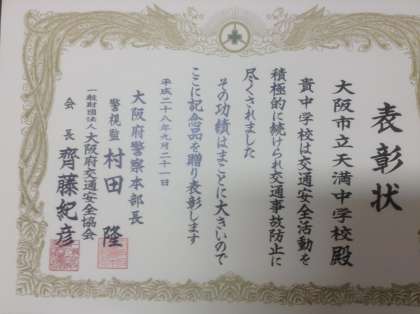 表彰状
大阪市立天満中学校殿
貴中学校は交通安全活動を
積極的に続けられ交通事故防止に
尽くされました
その功績はまことに大きいので
ここに記念品を贈り表彰します
平成二十八年九月二十一日
大阪府警察本部長
警視監 村田隆
一般財団法人大阪府交通安全協会
会長 齊藤紀彦